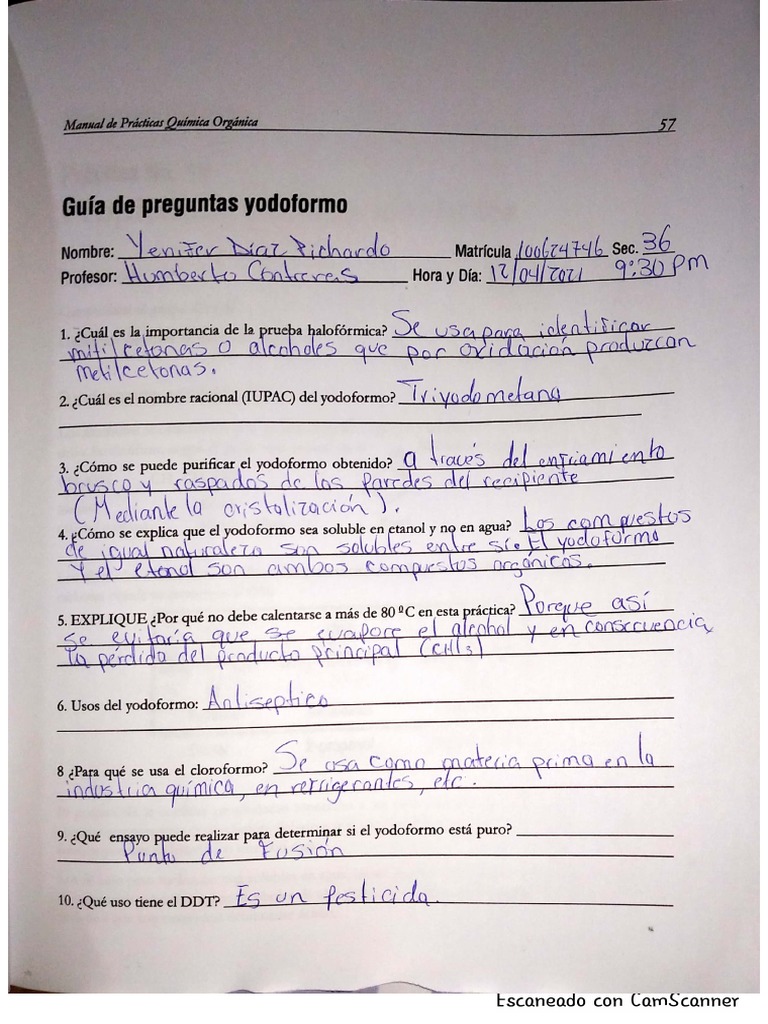 Manual de Prácticas Química Orgánica 57
Guía de preguntas yodoformo
Nombre: Yenifer Díaz Pichardo Matrícula 100624746 Sec. 36
Profesor: Humberto Contreras Hora y Día: 12/04/2021 9:30 pm
1. ¿Cuál es la importancia de la prueba halofórmica? Se usa para identificar
mitilcetonas o alcoholes que por oxidación produzcan
metilcetonas.
2. ¿Cuál es el nombre racional (IUPAC) del yodoformo? Triyodometano
3. ¿Cómo se puede purificar el yodoformo obtenido? a través del enfriamiento
brusco y raspados de las paredes del recipiente
(Mediante la cristalización).
4. ¿Cómo se explica que el yodoformo sea soluble en etanol y no en agua? Los compuestos
de igual naturaleza son solubles entre sí. El yodoformo
y el etanol son ambos compuestos orgánicos.
5. EXPLIQUE ¿Por qué no debe calentarse a más de 80 ºC en esta práctica? Porque así
se evitaría que se evapore el alcohol y en consecuencia
la pérdida del producto principal (CHI3)
6. Usos del yodoformo: Antiseptico
8 ¿Para qué se usa el cloroformo? Se usa como materia prima en la
industria química, en refrigerantes, etc.
9. ¿Qué ensayo puede realizar para determinar si el yodoformo está puro?
Punto de Fusión
10. ¿Qué uso tiene el DDT? Es un pesticida.
Escaneado con CamScanner